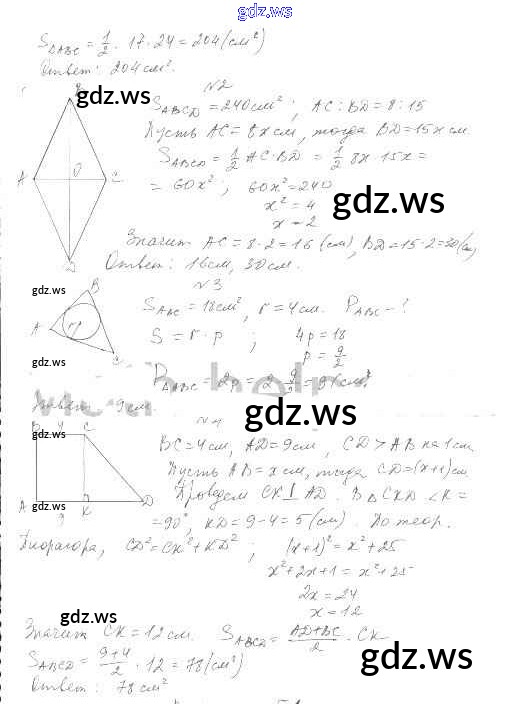 gdz.ws
S△ABC = 1/2 · 17 · 24 = 204 (см²)
Ответ: 204 см².
N2
gdz.ws
SABCD = 240 см²; AC : BD = 8 : 15
Пусть AC = 8x см, тогда BD = 15x см.
SABCD = 1/2 AC · BD = 1/2 8x · 15x =
= 60x²; 60x² = 240
x² = 4
x = 2
gdz.ws
A O C
D
Значит AC = 8 · 2 = 16 (см), BD = 15 · 2 = 30 (см)
Ответ: 16 см, 30 см.
N3
gdz.ws
B
SABC = 18 см², r = 4 см. PABC - ?
A r
S = r · p ; 4p = 18
p = 9/2
gdz.ws
C
PABC = 2p = 2 · 9/2 = 9 (см)
Ответ: 9 см.
N4
gdz.ws
gdz.ws
B 4 C
BC = 4 см, AD = 9 см, CD > AB на 1 см.
Пусть AB = x см, тогда CD = (x+1) см
Проведем CK ⊥ AD. В △CKD ∠K =
gdz.ws
A 9 K D
= 90°, KD = 9 - 4 = 5 (см). По теор.
Пифагора, CD² = CK² + KD² ; (x+1)² = x² + 25
x² + 2x + 1 = x² + 25
2x = 24
x = 12
gdz.ws
Значит CK = 12 см. SABCD = AD+BC/2 · CK
SABCD = 9+4/2 · 12 = 78 (см²)
gdz.ws
gdz.ws
Ответ: 78 см²